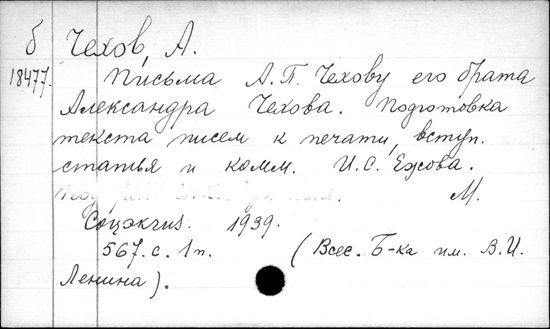 б Чехов, А.
18477. Письма А.П. Чехову его брата
Александра Чехова. Подготовка
текста писем к печати, вступ.
статья и комм. И.С. Ежова.
М.
Соцэкгиз. 1939.
567. с. 1 п. (Всес. Б-ка им. В.И.
Ленина).